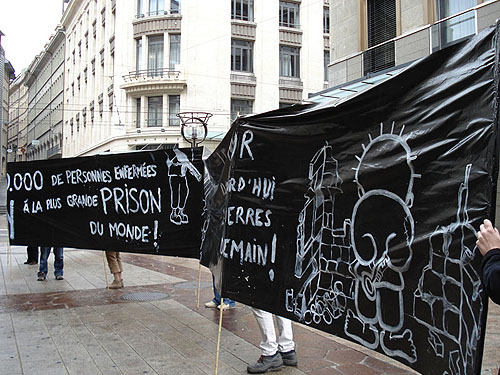 .000 DE PERSONNES ENFERMÉES
À LA PLUS GRANDE PRISON
! DU MONDE!
OR
RD'HUI
IERRES
EMAIN!